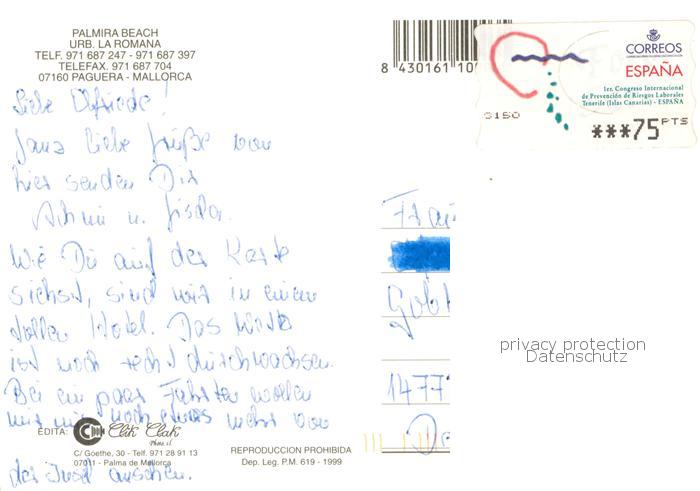 PALMIRA BEACH
URB. LA ROMANA
TELF. 971 687 247 - 971 687 397
TELEFAX. 971 687 704
07160 PAGUERA - MALLORCA
8 430161 10
CORREOS
ESPAÑA
1er. Congreso Internacional
de Prevención de Riesgos Laborales
Tenerife (Islas Canarias) - ESPAÑA
G150
***75 PTS
Liebe Elfriede!
Ganz liebe Grüße von
hier senden Dir
Achim u. Gisela.
Wie Du auf der Karte
siehst, sind wir in einem
tollen Hotel. Das Wetter
ist noch recht durchwachsen.
Bei ein paar Fahrten wollen
wir nun noch etwas mehr von
der Insel ansehen.
Frau
1477
privacy protection
Datenschutz
EDITA:
Clik Clak
Photo, sl
C/ Goethe, 30 - Telf. 971 28 91 13
07011 - Palma de Mallorca
REPRODUCCION PROHIBIDA
Dep. Leg. P.M. 619 - 1999